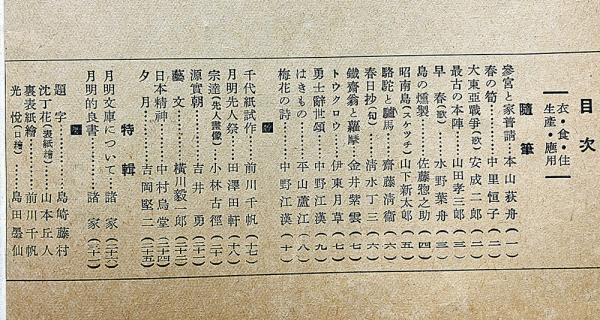 目次
衣・食・住
生產・應用
隨筆
參宮と家普請……本山荻舟(一)
春の筍……中里恒子(二)
大東亞戰爭(歌)…安成二郎(二)
最古の本陣……山田孝三郎(三)
早春(歌)……水野葉舟(三)
島の燻製……佐藤惣之助(四)
昭南島(スケッチ)山下新太郎(五)
駱駝と驢馬……齋藤清衞(六)
春日抄(句)……淸水丁三(六)
鐵齋翁と蘿摩…金井紫雲(七)
トウクロウ……伊東月草(七)
勇士辭世頌……中野江漢(九)
はきもの……平山蘆江(八)
梅花の詩……中野江漢(十)
千代紙試作……前川千帆(十七)
月明先人祭……田澤田軒(十八)
宗達(先人畫像)…小林古徑(二十)
源實朝……吉井勇(二十一)
藝文……橫川毅一郎(二十三)
日本精神……中村烏堂(二十四)
夕月……吉岡堅二(二十五)
特輯
月明文庫について…諸家(二十六)
月明的良書……諸家(二十一)
題字……島崎藤村
沈丁花(表紙繪)……山本丘人
裏表紙繪……前川千帆
光悅(口繪)……島田墨仙